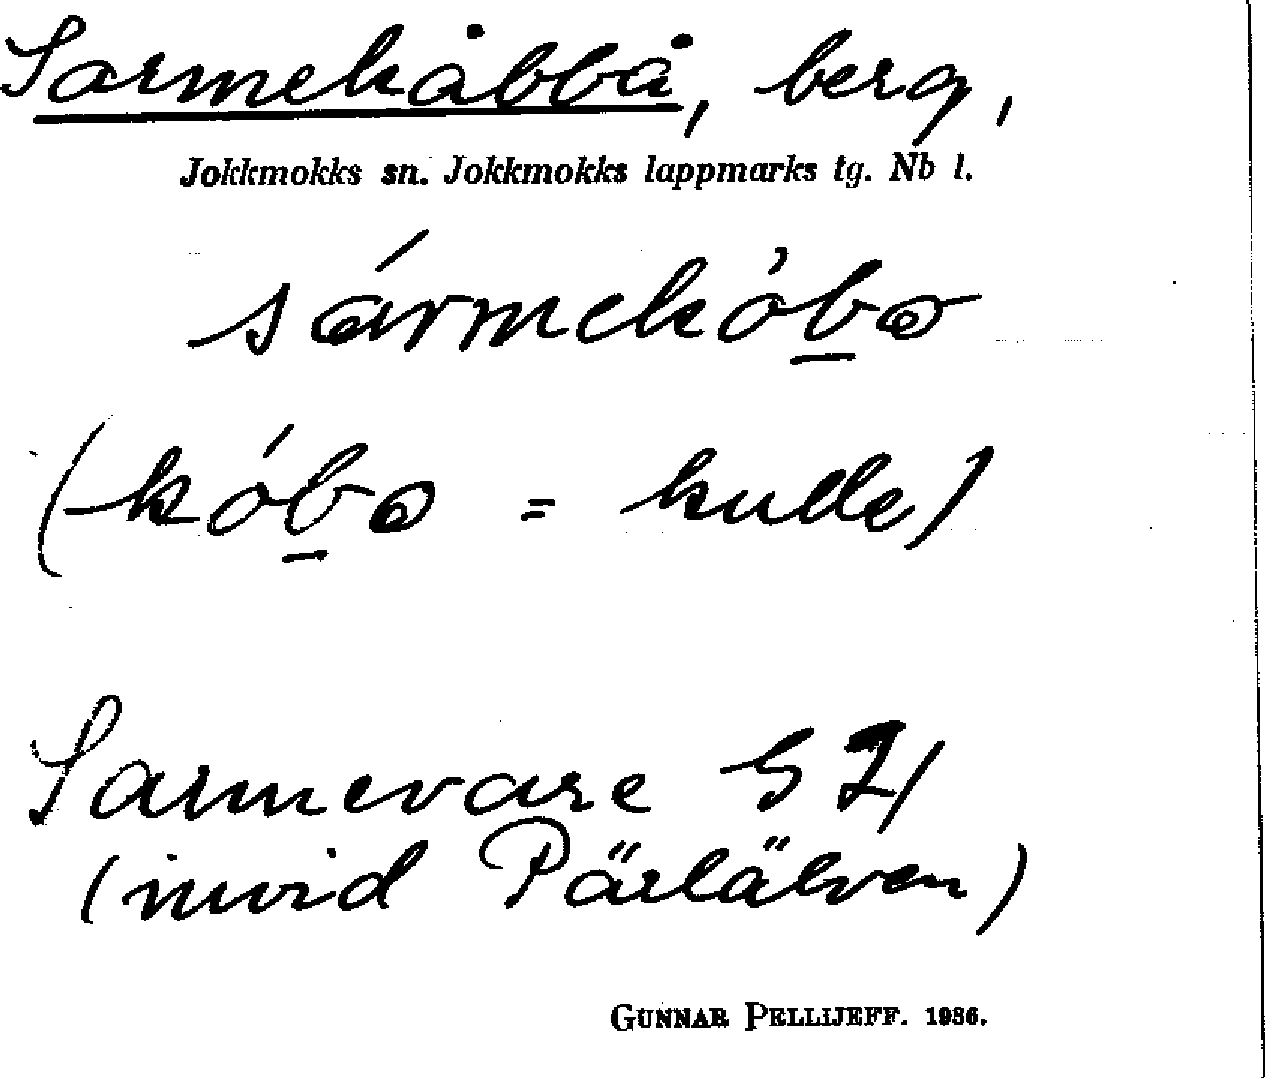 Sarmekåbbå, berg,
Jokkmokks sn. Jokkmokks lappmarks tg. Nb l.
sármekób̲o
(kób̲o = kulle)
Sarmevare S
(invid Pärlälven)
GUNNAR PELLIJEFF. 1936.